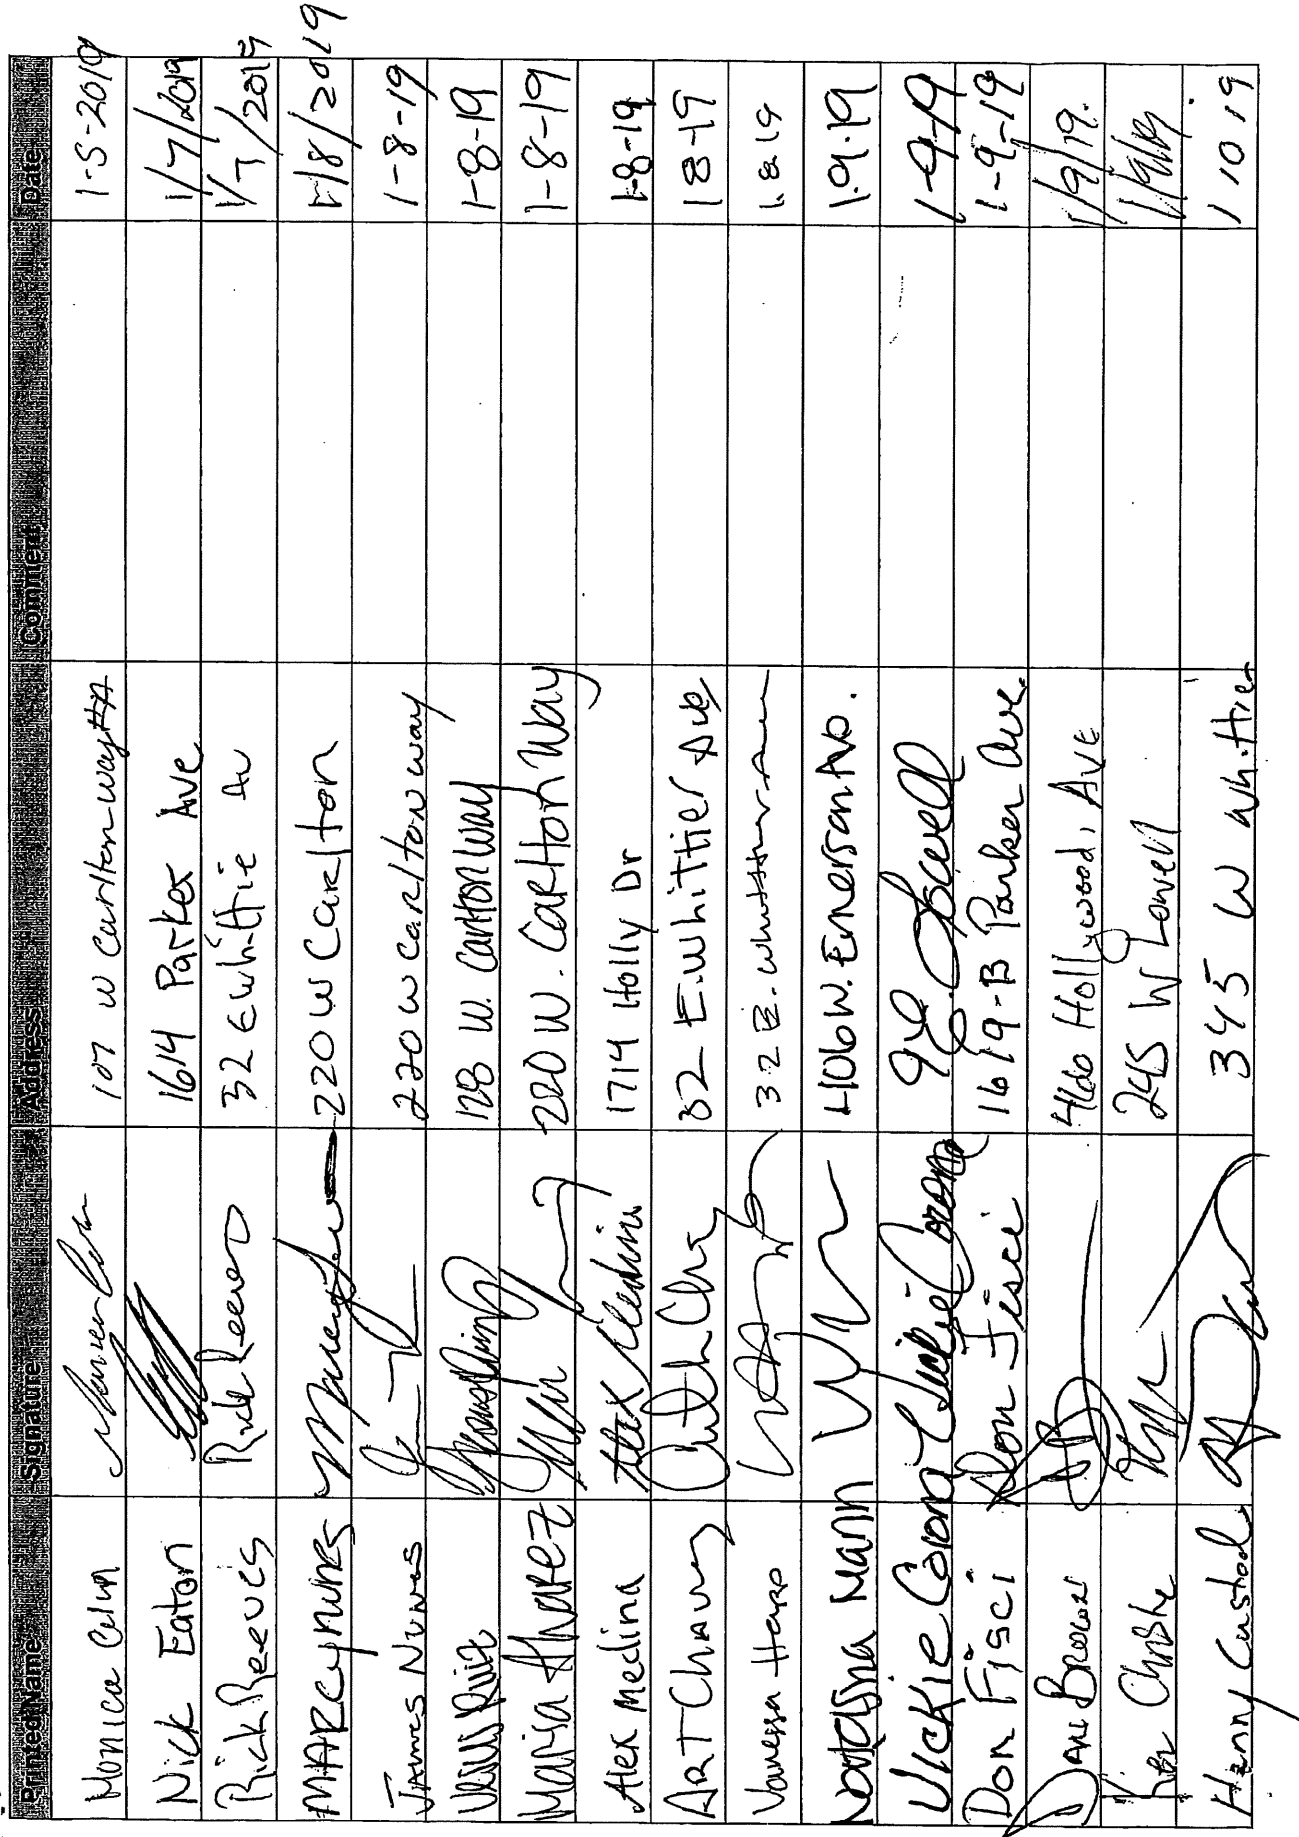 Printed Name Signature Address Comment Date
Monica 107 W Carlton way #A 1-5-2019
Nick Eaton 1614 Parker Ave 1/7/2019
Rick Reeves Rick Reeves 32 E Whittie Av 1/7/2019
MARCY NUNES 220 W Carlton 1/8/2019
James Nunes 220 W Carlton way 1-8-19
Ruiz 128 W. Carlton Way 1-8-19
Marisa Alvarez 220 W. Carlton Way 1-8-19
Alex Medina Alex Medina 1714 Holly Dr 1-8-19
ART Chavez 32 E. Whittier Ave 1-8-19
Vanessa Haro 32 E. Whittier Ave 1.8.19
Natasha Mann 406 W. Emerson Av. 1.9.19
Vickie Corona Vickie Corona Lowell 1-9-19
Don Fisci Don Fisci 1619-B Parker Ave. 1-9-19
Dave Brown Hollywood, Ave 1/9/19.
Ken 245 W Lowell 1/9/19
Henny Custod 345 W Whittier 1 10 19